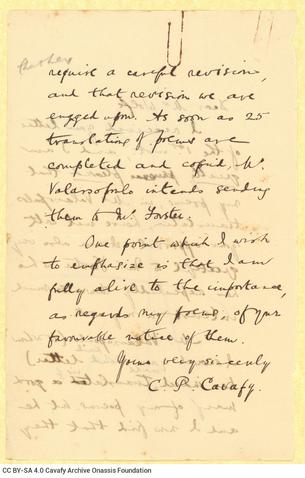 require a careful revision,
and that revision we are
engaged upon. As soon as 25
translations of poems are
completed and copied, Mr.
Valassopoulo intends sending
them to Mr. Forster.
One point which I wish
to emphasize is that I am
fully alive to the importance,
as regards my poems, of your
favourable notice of them.
Yours very sincerely
C. P. Cavafy.
CC BY-SA 4.0 Cavafy Archive Onassis Foundation